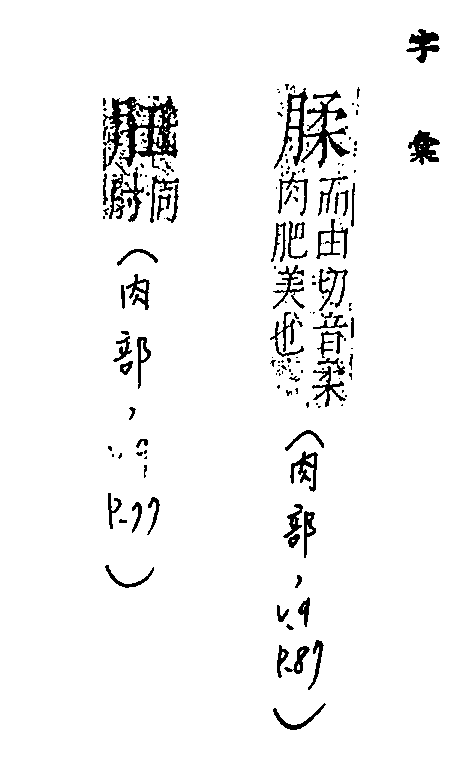 字彙
腬
而由切音柔
肉肥美也
(肉部,v.9 P.87)
同
(肉部,v.9 P.77)